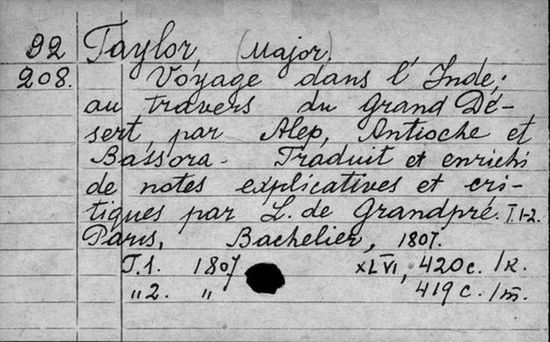 92 Taylor, (Major)
208. Voyage dans l'Inde;
au travers du Grand Dé-
sert, par Alep, Antioche et
Bassora. Traduit et enrichi
de notes explicatives et cri-
tiques par L. de Grandpré. T.1-2.
Paris, Bachelier, 1807.
T.1. 1807 XLVI, 420 c. /R.
" 2. " 419 c. /m.